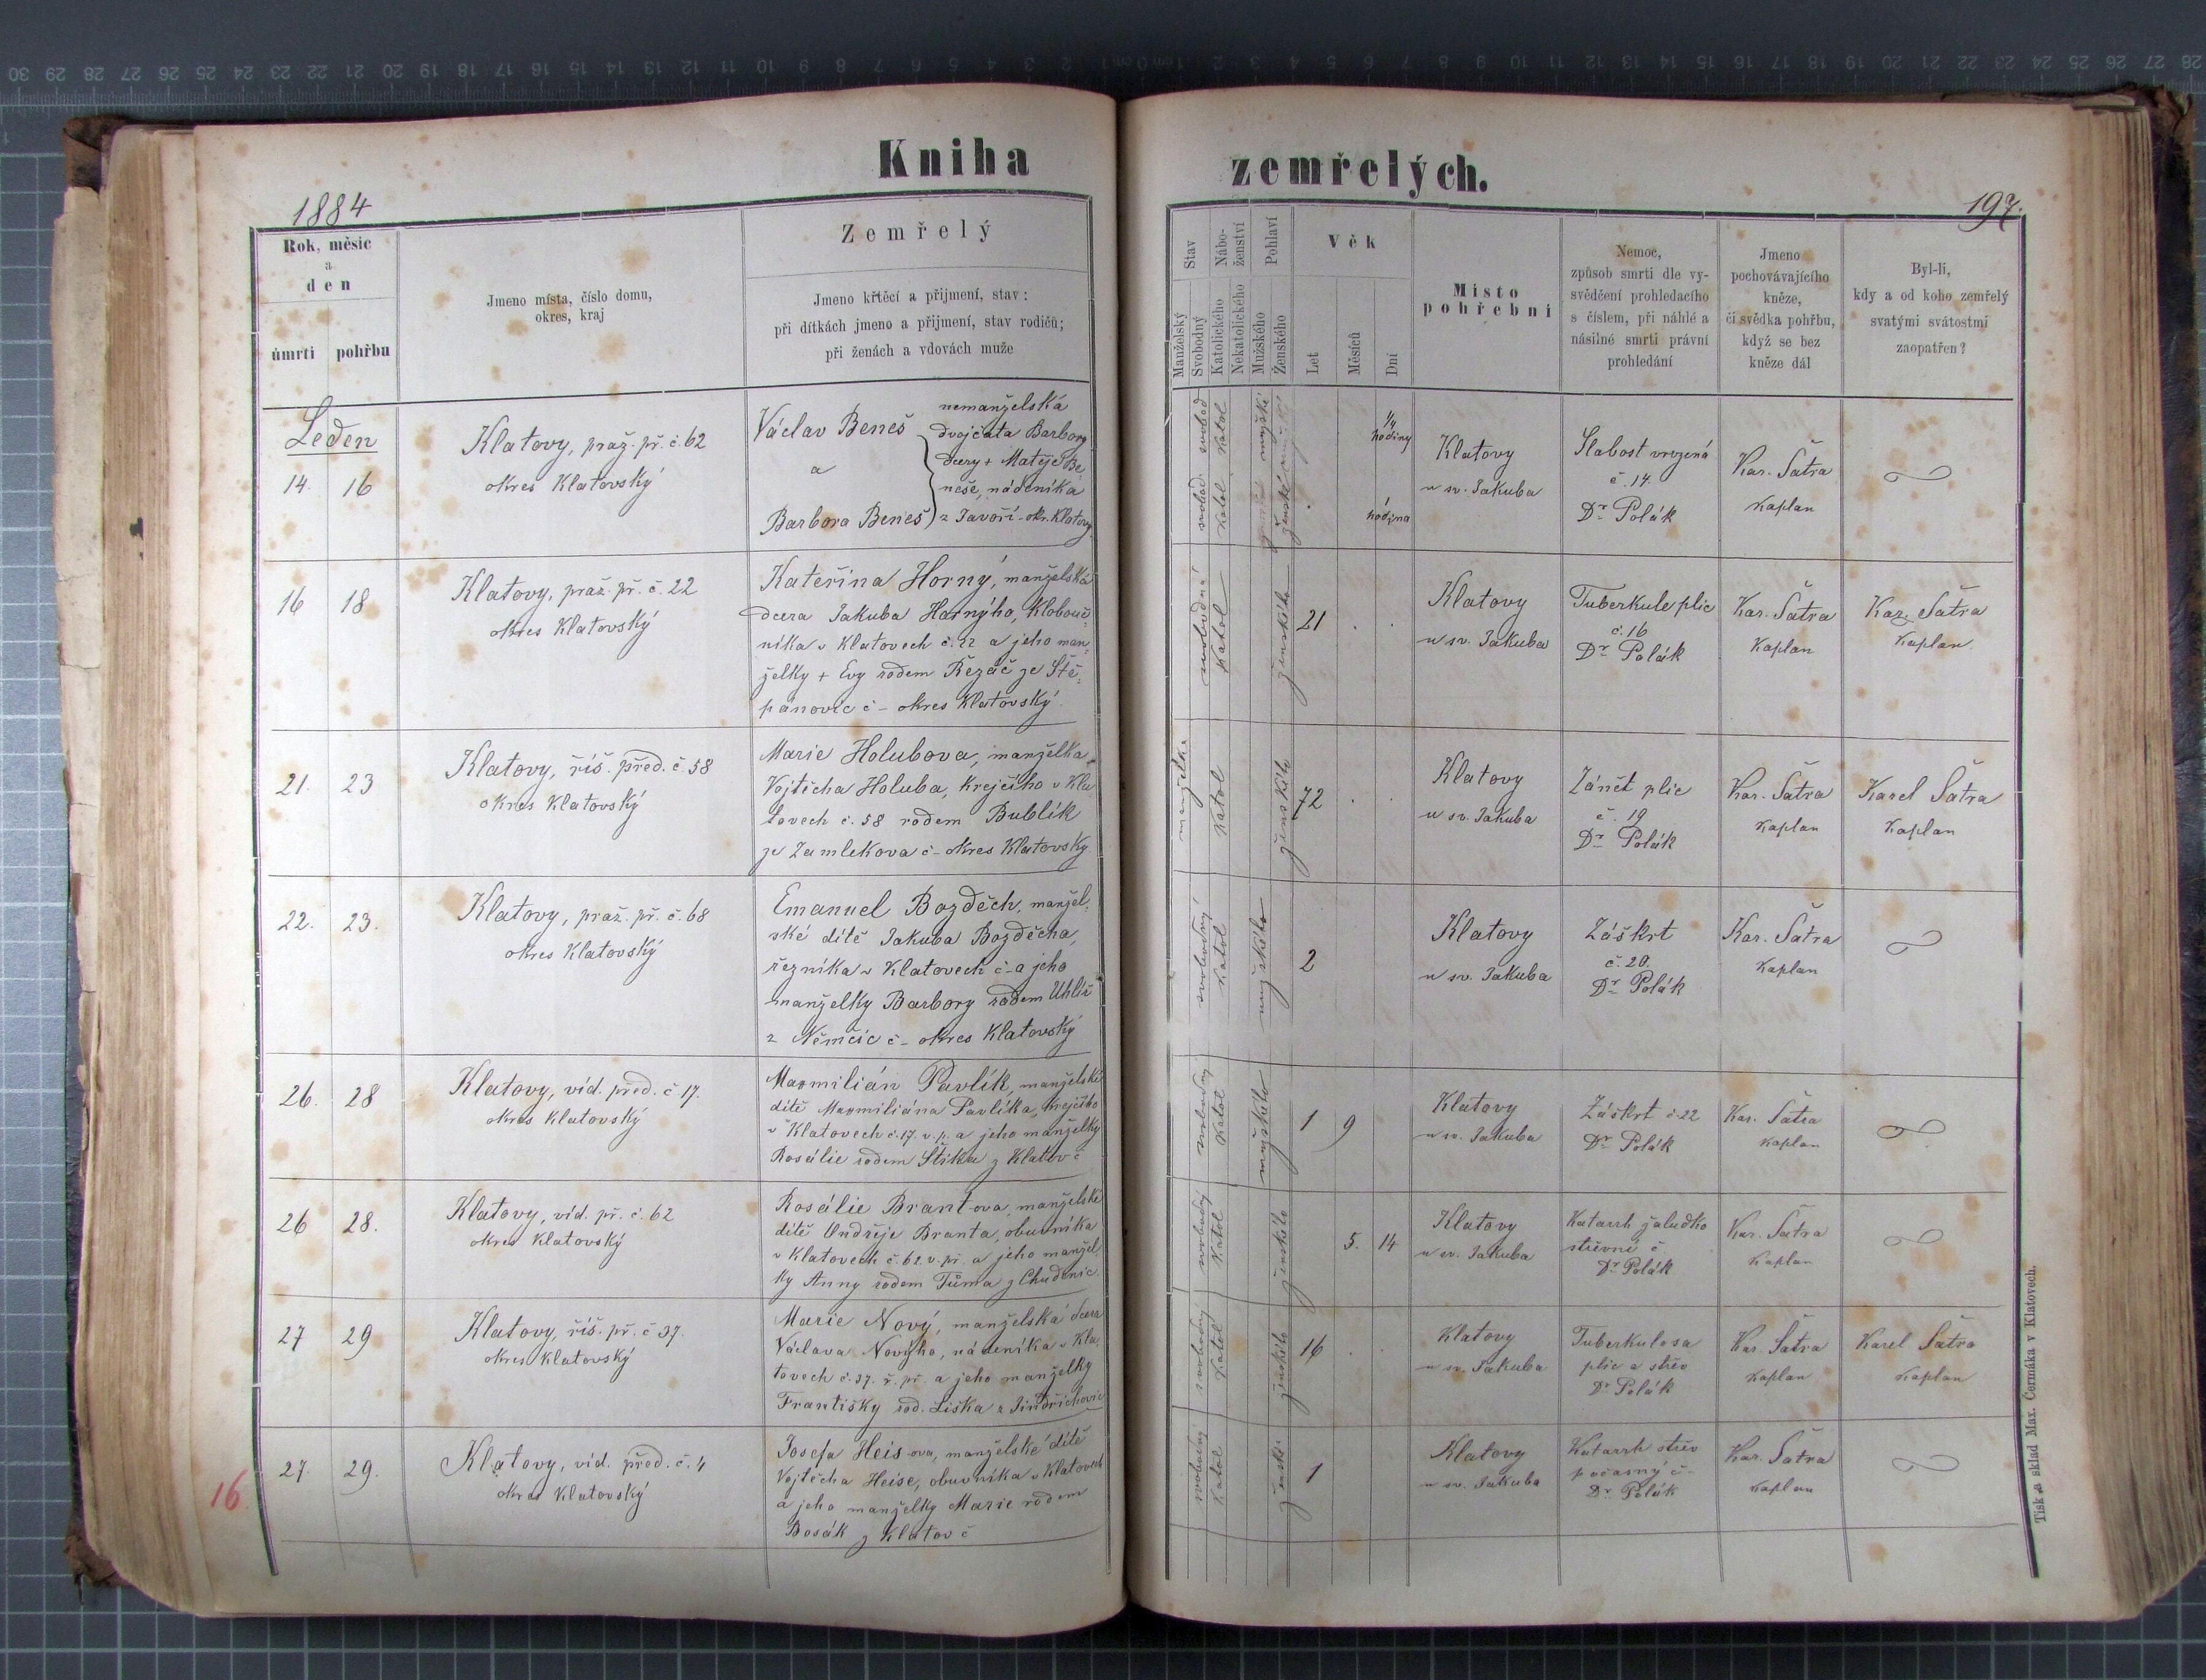 Kniha zemřelých.
1884
197.
Rok, měsíc
a
den
úmrtí pohřbu
Jmeno místa, číslo domu,
okres, kraj
Zemřelý
Jmeno křtěcí a přijmení, stav:
při dítkách jmeno a přijmení, stav rodičů;
při ženách a vdovách muže
Stav
Manželský
Svobodný
Nábo-
ženství
Katolického
Nekatolického
Pohlaví
Mužského
Ženského
Věk
Let
Měsíců
Dní
Místo
pohřební
Nemoc,
způsob smrti dle vy-
svědčení prohledacího
s číslem, při náhlé a
násilné smrti právní
prohledání
Jmeno
pochovávajícího
kněze,
či svědka pohřbu,
když se bez
kněze dál
Byl-li,
kdy a od koho zemřelý
svatými svátostmi
zaopatřen?
Leden
14. 16
Klatovy, praž. př. č. 62
okres Klatovský
Václav Beneš
a
Barbora Beneš
nemanželská
dvojčata Barbory
dcery + Matěje Be
neše, nádeníka
z Javoří - okr. Klatovy
svobod
svobod
katol
katol
mužské
ženské
1/4
hodiny
1
hodina
Klatovy
u sv. Jakuba
Slabost vrozená
č. 14.
Dr Polák
Kar. Šatra
Kaplan
16 18
Klatovy, praž. př. č. 22
okres Klatovský
Kateřina Horný, manželská
dcera Jakuba Horného, klobouč-
níka v Klatovech č. 22 a jeho man-
želky + Evy rodem Řezáč ze Ště-
pánovic č - okres Klatovský
svobodná
katol
ženského
21
Klatovy
u sv. Jakuba
Tuberkule plic
č. 16
Dr Polák
Kar. Šatra
Kaplan
Kar. Šatra
Kaplan.
21. 23
Klatovy, říš. před. č. 58
okres Klatovský
Marie Holubova, manželka
Vojtěcha Holuba, krejčího v Kla
tovech č. 58 rodem Bublík
ze Zamlekova č - okres Klatovský
manželka
katol
ženského
72
Klatovy
u sv. Jakuba
Zánět plic
č. 19
Dr Polák
Kar. Šatra
Kaplan
Karel Šatra
Kaplan
22. 23.
Klatovy, praž. př. č. 68
okres Klatovský
Emanuel Bozděch, manžel-
ské dítě Jakuba Bozděcha,
řezníka v Klatovech č - a jeho
manželky Barbory rodem Uhlíř
z Němčic č - okres Klatovský
svobodný
katol
mužského
2
Klatovy
u sv. Jakuba
Záškrt
č. 20.
Dr Polák
Kar. Šatra
Kaplan
26. 28
Klatovy, víd. před. č 17.
okres Klatovský
Maxmilián Pavlík, manželské
dítě Maxmiliána Pavlíka, krejčího
v Klatovech č. 17. v. p. a jeho manželky
Rosálie rodem Štika z Klatov č
svobodný
katol
mužského
1 9
Klatovy
u sv. Jakuba
Záškrt č 22
Dr Polák
Kar. Šatra
Kaplan
26 28.
Klatovy, víd. př. č. 62
okres Klatovský
Rosálie Brant-ova, manželské
dítě Ondřeje Branta, obuvníka
v Klatovech č. 62 v. př. a jeho manžel
ky Anny rodem Tůma z Chudenic.
svobodný
katol
ženského
5. 14
Klatovy
u sv. Jakuba
Katarrh žaludko
střevní č.
Dr Polák
Kar. Šatra
Kaplan
27 29
Klatovy, říš. př. č 37.
okres Klatovský
Marie Nový, manželská dcera
Václava Nového, nádeníka v Kla-
tovech č. 37. ř. př. a jeho manželky
Františky rod. Liška z Jindřichovic
svobodný
katol
ženského
16
Klatovy
u sv. Jakuba
Tuberkulosa
plic a střev
Dr Polák
Kar. Šatra
Kaplan
Karel Šatra
Kaplan
27. 29.
Klatovy, víd. před. č. 4
okres Klatovský
Josefa Heis-ova, manželské dítě
Vojtěcha Heise, obuvníka v Klatovech
a jeho manželky Marie rodem
Bosák z Klatov č
svobodný
katol
žensk.
1
Klatovy
u sv. Jakuba
Katarrh střev
počasný č -
Dr Polák
Kar. Šatra
Kaplan
16
Tisk a sklad Max. Čermáka v Klatovech.